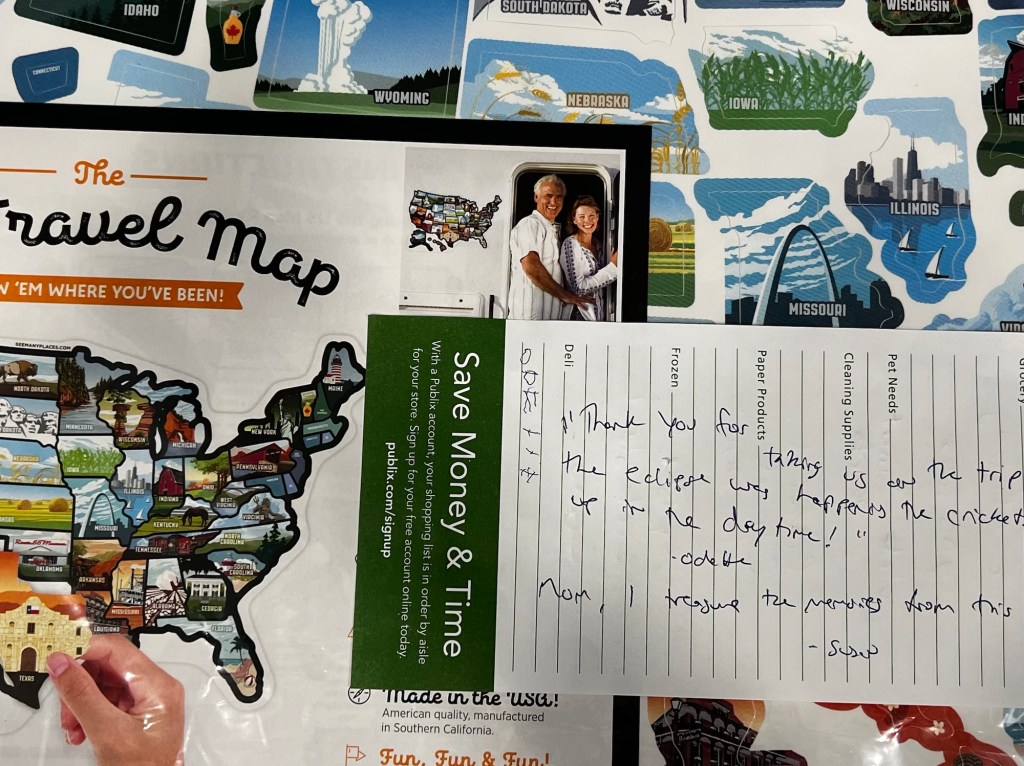 IDAHO
CONNECTICUT
WYOMING
SOUTH DAKOTA
NEBRASKA
IOWA
WISCONSIN
ILLINOIS
MISSOURI
The
Travel Map
'EM WHERE YOU'VE BEEN!
SEEMANYPLACES.COM
NORTH DAKOTA
MINNESOTA
WISCONSIN
MICHIGAN
MAINE
NEW YORK
NEBRASKA
IOWA
ILLINOIS
INDIANA
OHIO
PENNSYLVANIA
WEST VIRGINIA
VIRGINIA
KANSAS
MISSOURI
KENTUCKY
TENNESSEE
NORTH CAROLINA
SOUTH CAROLINA
OKLAHOMA
ARKANSAS
MISSISSIPPI
ALABAMA
GEORGIA
LOUISIANA
FLORIDA
TEXAS
Save Money & Time
With a Publix account, your shopping list is in order by aisle
for your store. Sign up for your free account online today.
publix.com/signup
Deli
Frozen
Paper Products
Cleaning Supplies
Pet Needs
Grocery
"Thank you for
taking us on the trip
the eclipse was happening the crickets
up in the daytime!"
-odette
Mom, I treasure the memories from this
Made in the USA!
American quality, manufactured
in Southern California.
Fun, Fun & Fun!